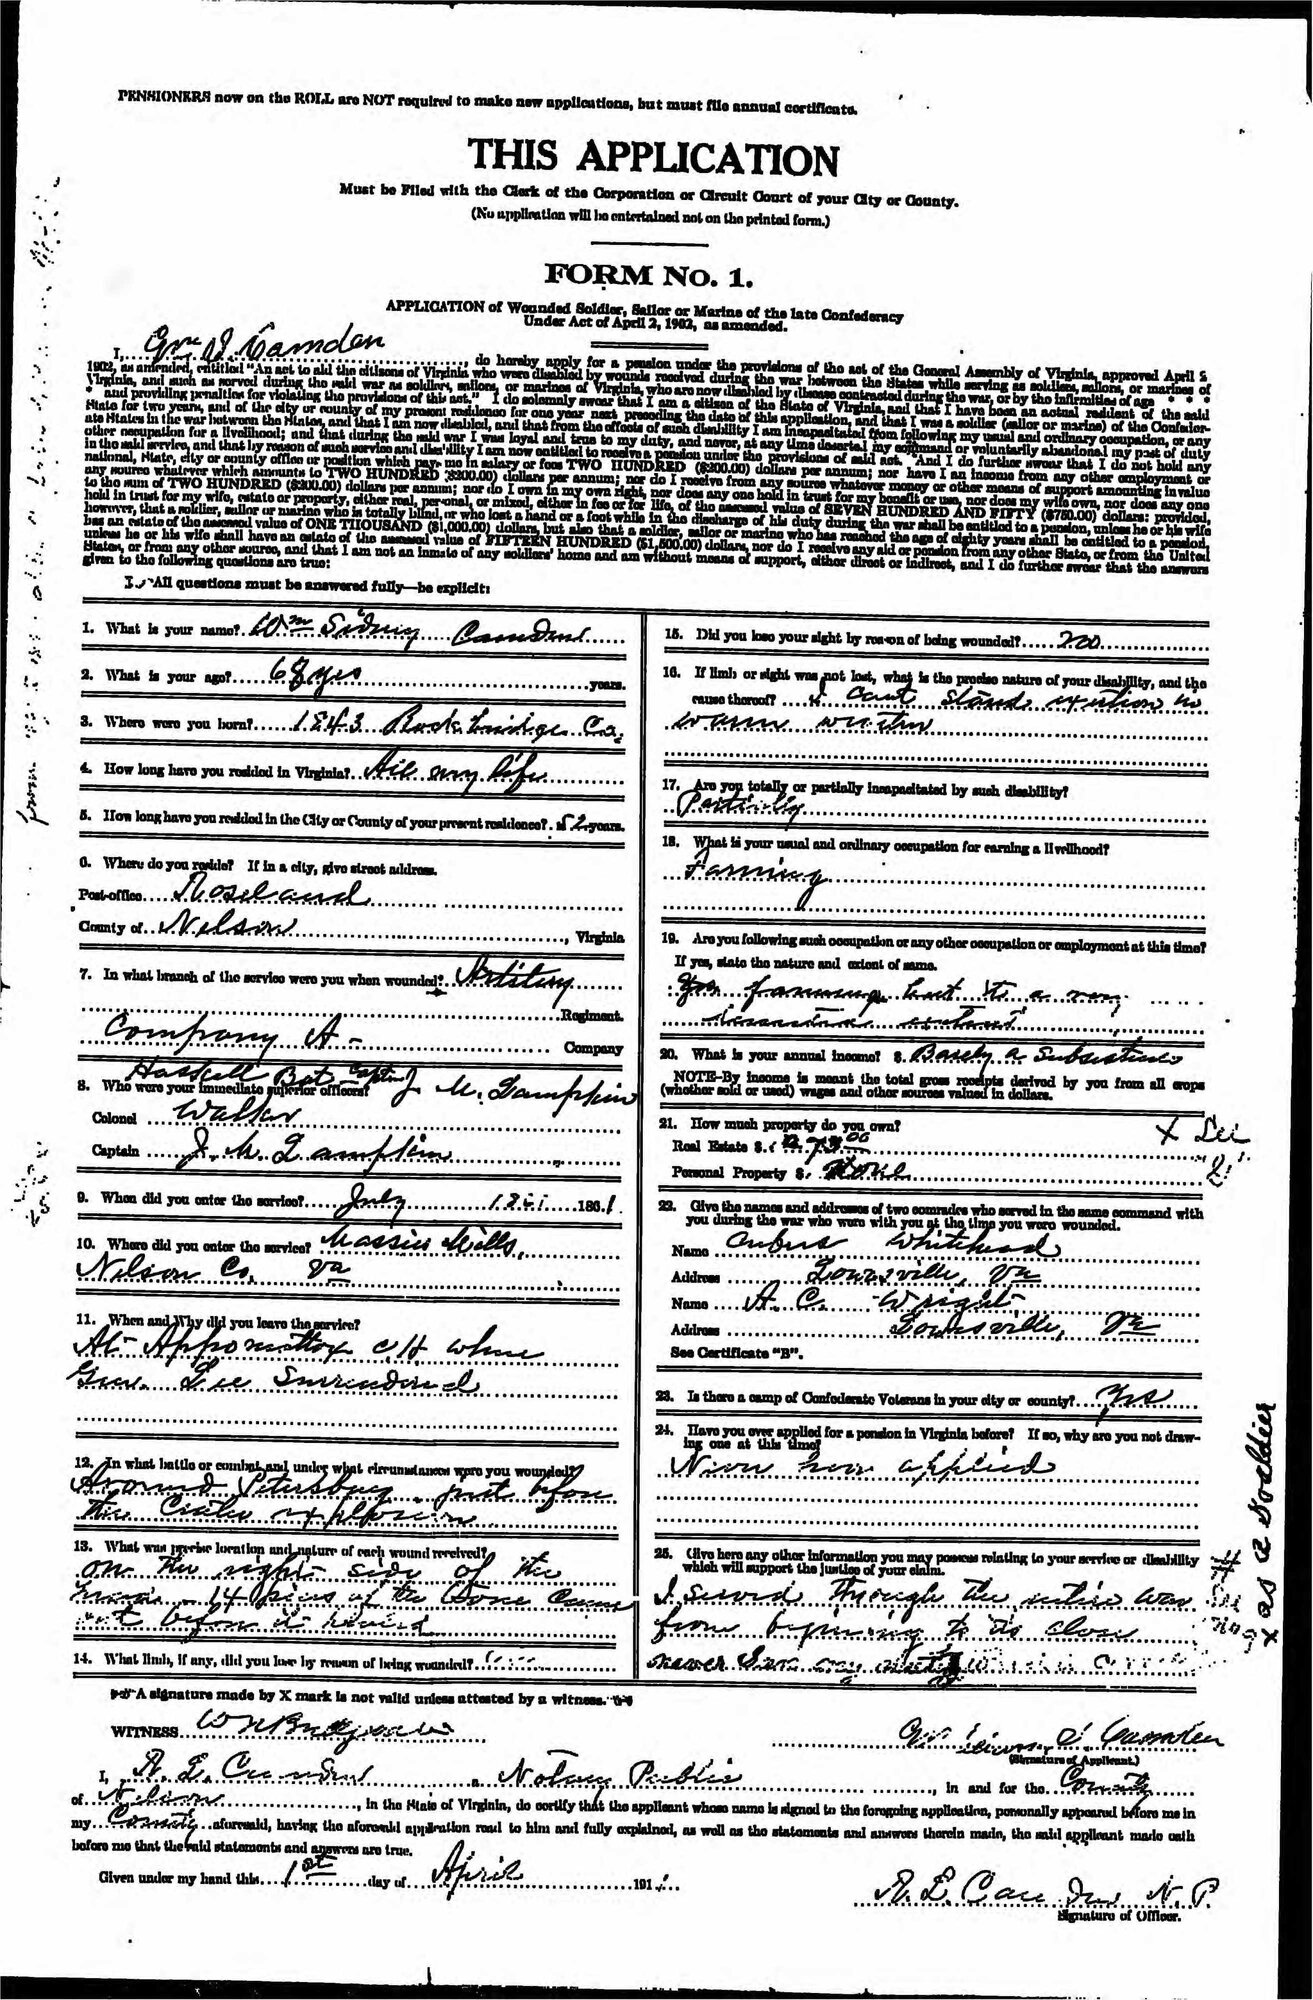 PENSIONERS now on the ROLL are NOT required to make new applications, but must file annual certificate.
THIS APPLICATION
Must be Filed with the Clerk of the Corporation or Circuit Court of your City or County.
(No application will be entertained not on the printed form.)
FORM No. 1.
APPLICATION of Wounded Soldier, Sailor or Marine of the late Confederacy
Under Act of April 2, 1902, as amended.
I, Wm S. Camden, do hereby apply for a pension under the provisions of the act of the General Assembly of Virginia, approved April 2
1902, as amended, entitled "An act to aid the citizens of Virginia who were disabled by wounds received during the war between the States while serving as soldiers, sailors, or marines of
Virginia, and such as served during the said war as soldiers, sailors, or marines of Virginia, who are now disabled by disease contracted during the war, or by the infirmities of age * * *
* and providing penalties for violating the provisions of this act." I do solemnly swear that I am a citizen of the State of Virginia, and that I have been an actual resident of the said
State for two years, and of the city or county of my present residence for one year next preceding the date of this application, and that I was a soldier (sailor or marine) of the Confeder-
ate States in the war between the States, and that I am now disabled, and that from the effects of such disability I am incapacitated from following my usual and ordinary occupation, or any
other occupation for a livelihood; and that during the said war I was loyal and true to my duty, and never, at any time deserted my command or voluntarily abandoned my post of duty
in the said service, and that by reason of such service and disability I am now entitled to receive a pension under the provisions of said act. And I do further swear that I do not hold any
national, State, city or county office or position which pays me in salary or fees TWO HUNDRED ($200.00) dollars per annum; nor have I an income from any other employment or
any source whatever which amounts to TWO HUNDRED ($200.00) dollars per annum; nor do I receive from any source whatever money or other means of support amounting in value
to the sum of TWO HUNDRED ($200.00) dollars per annum; nor do I own in my own right, nor does any one hold in trust for my benefit or use, nor does my wife own, nor does any one
hold in trust for my wife, estate or property, either real, personal, or mixed, either in fee or for life, of the assessed value of SEVEN HUNDRED AND FIFTY ($750.00) dollars: provided,
however, that a soldier, sailor or marine who is totally blind, or who lost a hand or a foot while in the discharge of his duty during the war shall be entitled to a pension, unless he or his wife
has an estate of the assessed value of ONE THOUSAND ($1,000.00) dollars, but also that a soldier, sailor or marine who has reached the age of eighty years shall be entitled to a pension,
unless he or his wife shall have an estate of the assessed value of FIFTEEN HUNDRED ($1,500.00) dollars, nor do I receive any aid or pension from any other State, or from the United
States, or from any other source, and that I am not an inmate of any soldiers' home and am without means of support, either direct or indirect, and I do further swear that the answers
given to the following questions are true:
All questions must be answered fully—be explicit:
1. What is your name? Wm Sidney Camden
2. What is your age? 68 yrs years.
3. Where were you born? 1843 Rockbridge Co.
4. How long have you resided in Virginia? All my life
5. How long have you resided in the City or County of your present residence? 52 years.
6. Where do you reside? If in a city, give street address.
Post-office Roseland
County of Nelson, Virginia
7. In what branch of the service were you when wounded? Artillery
Regiment.
Company A - Company
Haskell Bat Captin J M. Lampkin
8. Who were your immediate superior officers?
Colonel Walker
Captain J. M. Lampkin
9. When did you enter the service? July 1861 1861.
10. Where did you enter the service? Massies Mills,
Nelson Co. Va
11. When and Why did you leave the service?
At Appomattox C.H. when
Gen. Lee Surrendered
12. In what battle or combat and under what circumstances were you wounded?
Around Petersburg just before
the Crater explosion
13. What was precise location and nature of each wound received?
on the right side of the
14 pieces of the bone came
out before it healed
14. What limb, if any, did you lose by reason of being wounded?
15. Did you lose your sight by reason of being wounded? no
16. If limb or sight was not lost, what is the precise nature of your disability, and the
cause thereof? I cant stand exertion in
warm weather
17. Are you totally or partially incapacitated by such disability?
Partially
18. What is your usual and ordinary occupation for earning a livelihood?
Farming
19. Are you following such occupation or any other occupation or employment at this time?
If yes, state the nature and extent of same.
Yes farming but to a very
extent
20. What is your annual income? $ Barely a Subsistence
NOTE—By income is meant the total gross receipts derived by you from all crops
(whether sold or used) wages and other sources valued in dollars.
21. How much property do you own?
Real Estate $
Personal Property $ None
22. Give the names and addresses of two comrades who served in the same command with
you during the war who were with you at the time you were wounded.
Name Whitehead
Address Lowesville, Va
Name A. C. Wright
Address Lowesville, Va
See Certificate "B".
23. Is there a camp of Confederate Veterans in your city or county? Yes
24. Have you ever applied for a pension in Virginia before? If so, why are you not draw-
ing one at this time?
Never have applied
25. Give here any other information you may possess relating to your service or disability
which will support the justice of your claim.
I served through the entire war
from begining to its close
never
x as a Soldier
A signature made by X mark is not valid unless attested by a witness.
WITNESS
William S. Camden
(Signature of Applicant.)
I, A. E. Camden a Notary Public, in and for the County
of Nelson, in the State of Virginia, do certify that the applicant whose name is signed to the foregoing application, personally appeared before me in
my County aforesaid, having the aforesaid application read to him and fully explained, as well as the statements and answers therein made, the said applicant made oath
before me that the said statements and answers are true.
Given under my hand this 1st day of April 1911.
A. E. Camden N. P.
Signature of Officer.